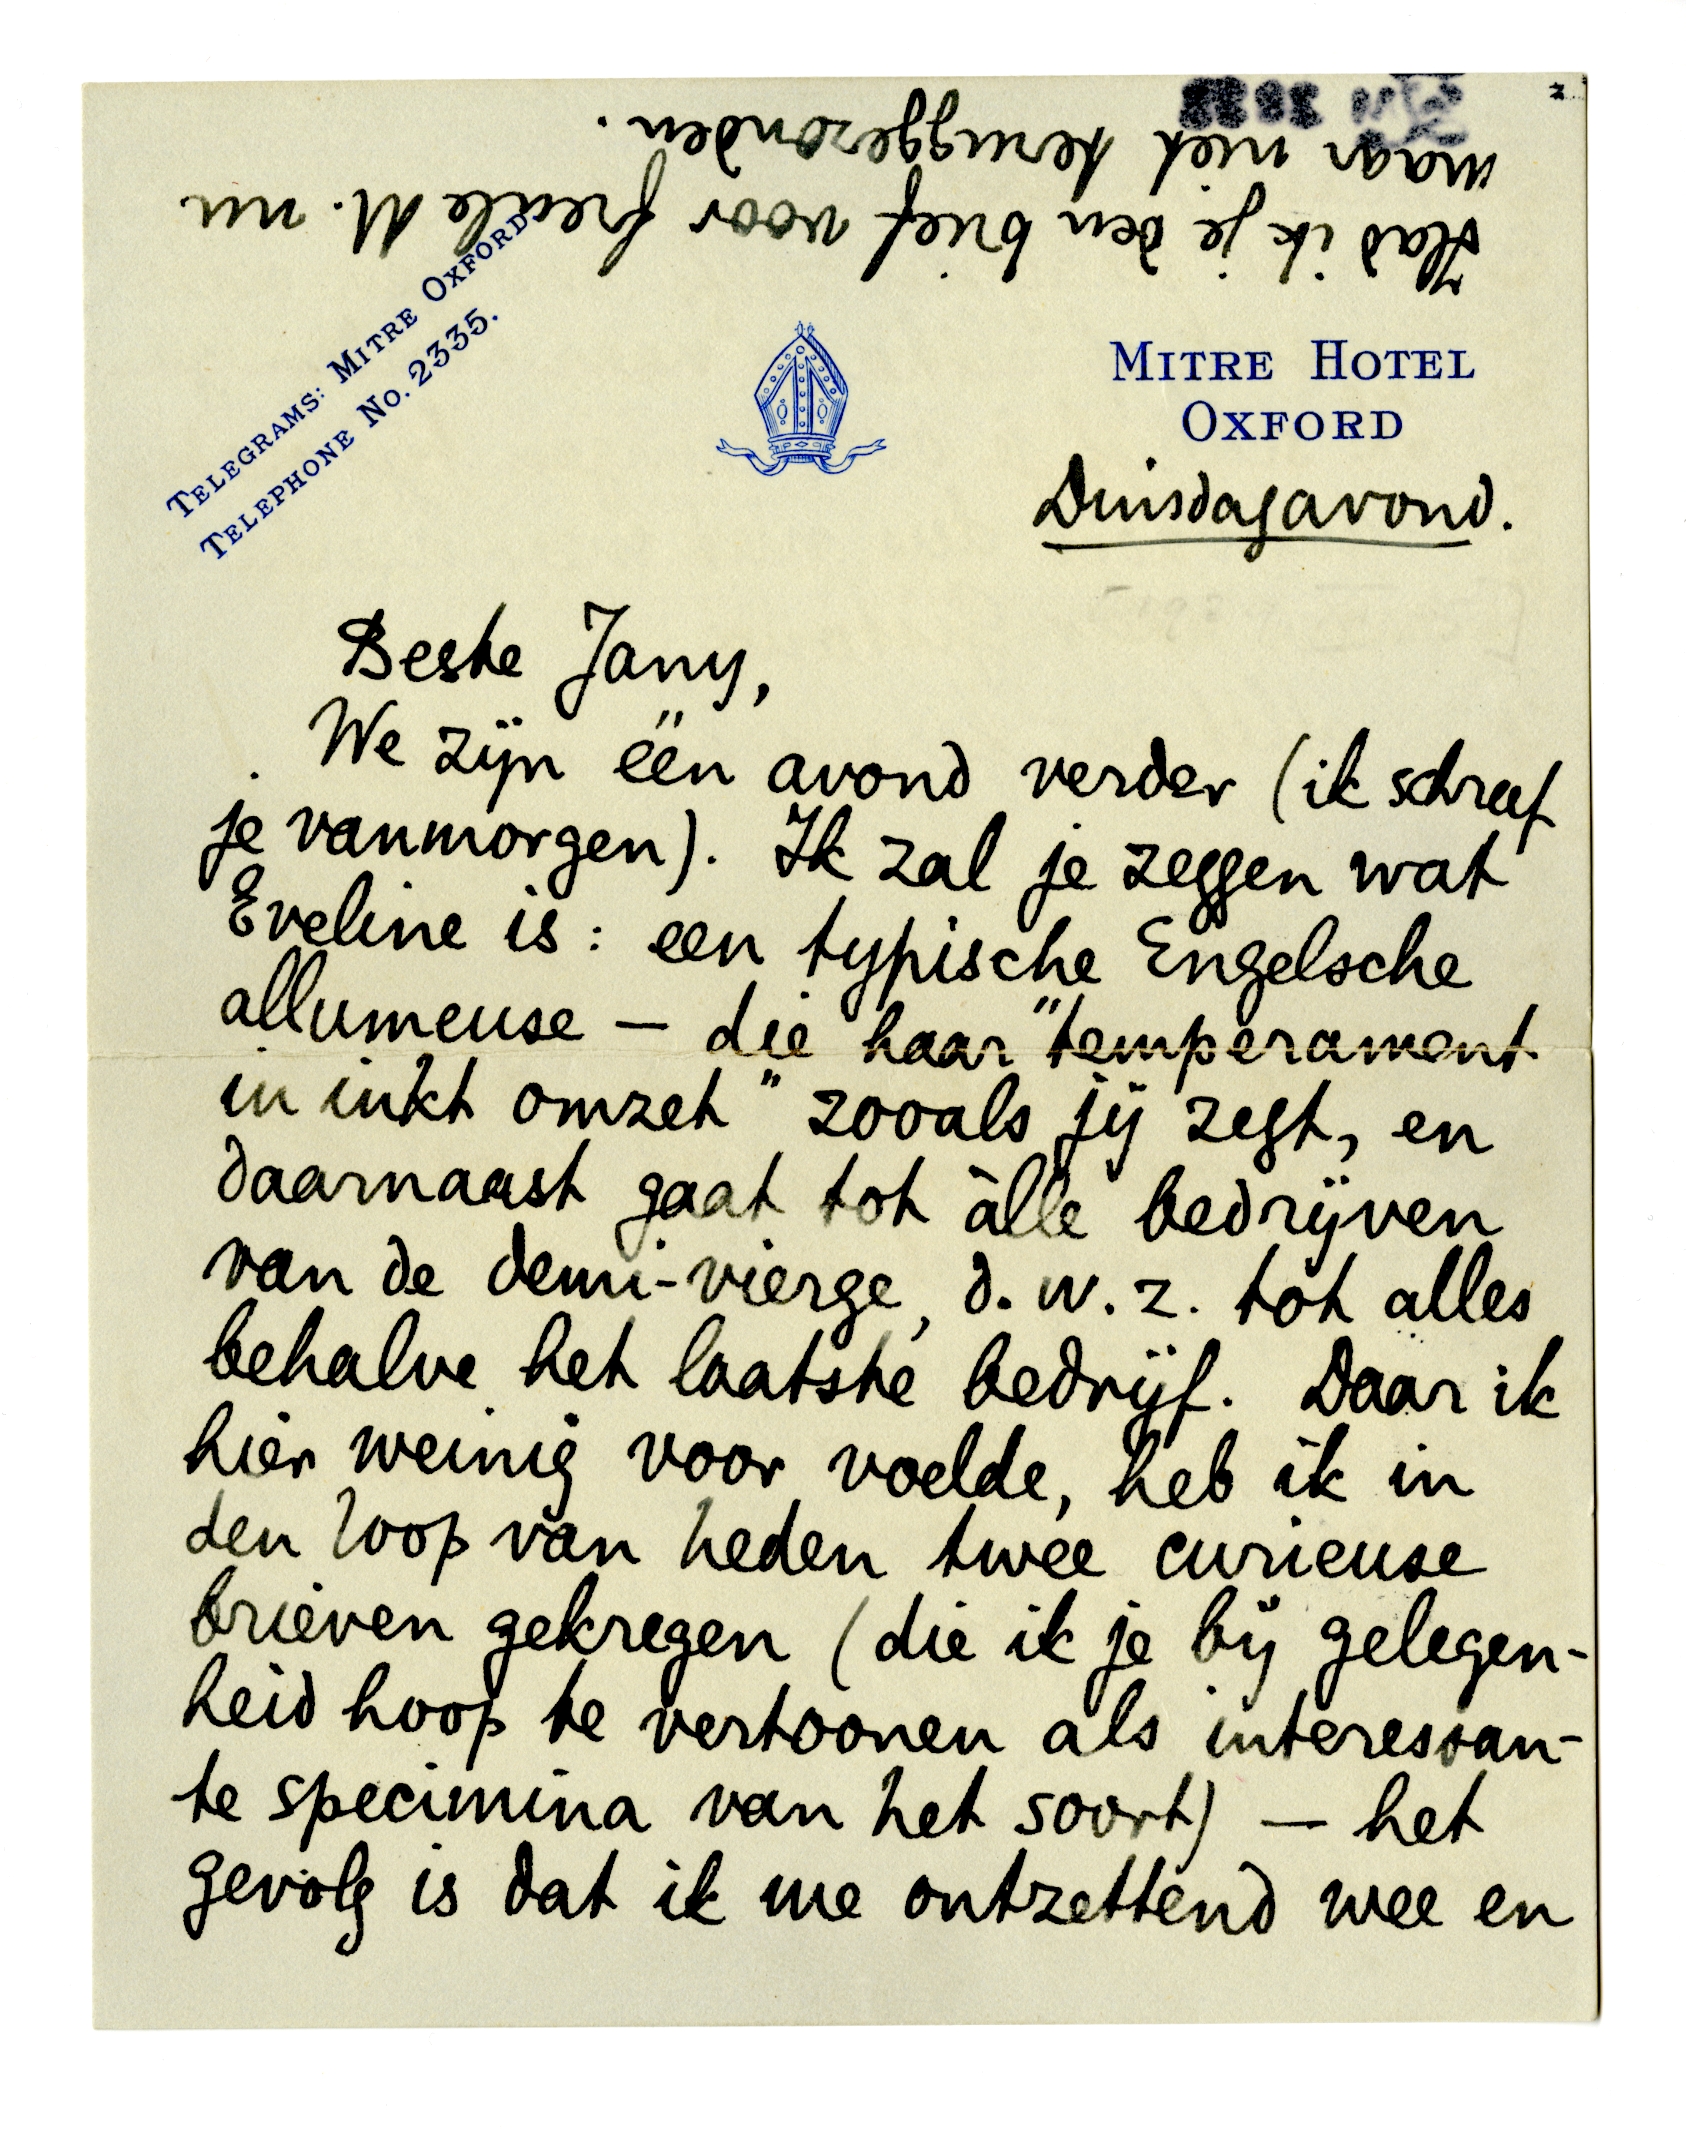 Had ik je den brief voor freule M. nu
maar niet teruggezonden.
TELEGRAMS: MITRE OXFORD.
TELEPHONE NO. 2335.
MITRE HOTEL
OXFORD
Dinsdagavond.
Beste Jany,
We zijn één avond verder (ik schreef
je vanmorgen). Ik zal je zeggen wat
Eveline is: een typische Engelsche
allumeuse — die haar "temperament
in inkt omzet" zooals jij zegt, en
daarnaast gaat tot àlle bedrijven
van de demi-vierge, d.w.z. tot alles
behalve het laatste bedrijf. Daar ik
hier weinig voor voelde, heb ik in
den loop van heden twee curieuse
brieven gekregen (die ik je bij gelegen-
heid hoop te vertoonen als interessan-
te specimina van het soort) — het
gevolg is dat ik me ontzettend wee en